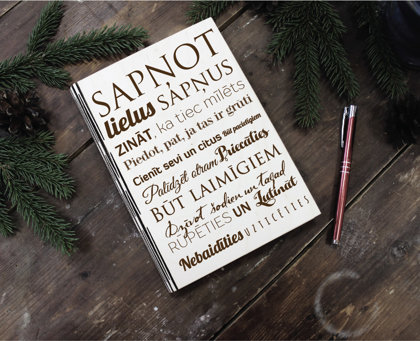 SAPŅOT
lielus SAPŅUS
ZINĀT, ka tiec mīlēts
Piedot, pat, ja tas ir grūti
Cienīt sevi un citus Būt pacietīgiem
Palīdzēt otram Priecāties
BŪT LAIMĪGIEM
Dzīvot šodien un tagad
RŪPĒTIES UN Lutināt
Nebaidīties UZTICĒTIES